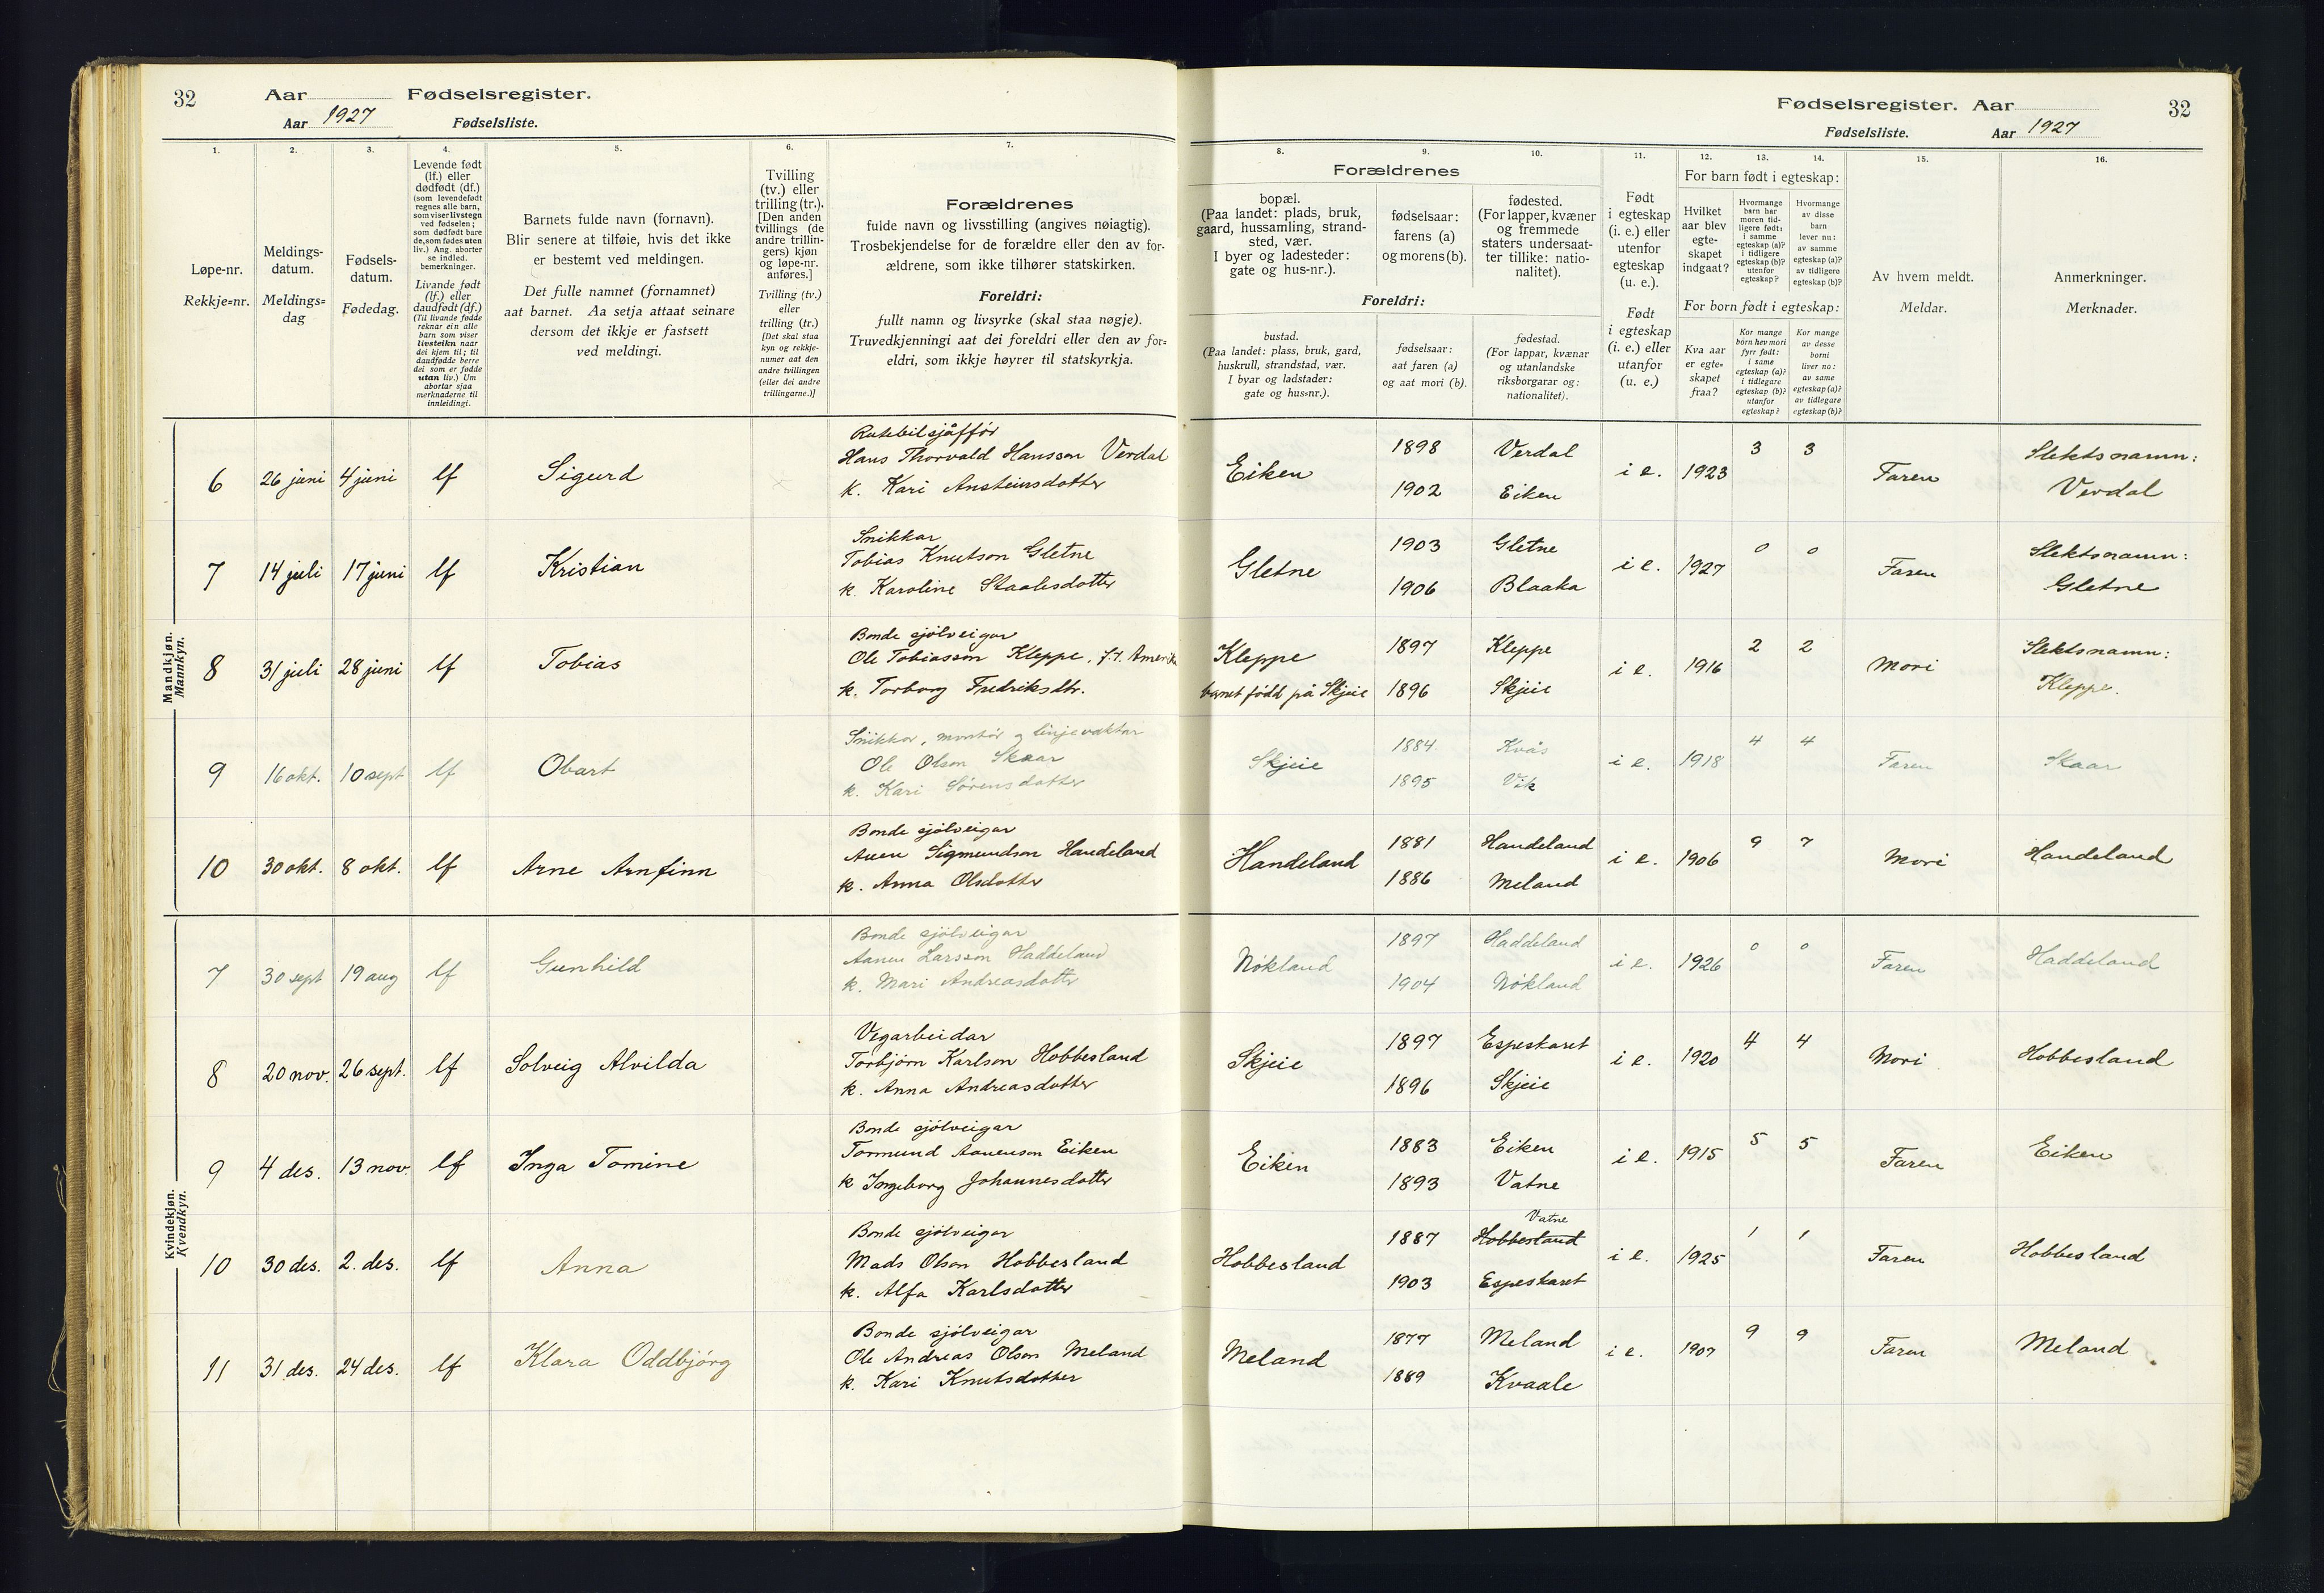 32 Aar Fødselsregister.
Aar 1927 Fødselsliste.
Fødselsregister. Aar 32
Fødselsliste. Aar 1927
1. 2. 3. 4. 5. 6. 7.
Løpe-nr.
Rekkje=nr.
Meldings-
datum.
Meldings=
dag
Fødsels-
datum.
Fødedag.
Levende født
(lf.) eller
dødfødt (df.)
(som levendefødt
regnes alle barn,
som viser livstegn
ved fødselen;
som dødfødt bare
de, som fødes uten
liv.) Ang. aborter
se indled.
bemerkninger.
Livande født
(lf.) eller
daudfødt (df.)
(Til livande fødde
reknar ein alle
born som viser
livsteikn naar
dei kjem til; til
daudfødde berre
dei som er fødde
utan liv.) Um
abortar sjaa
merknaderne til
innleidingi.
Barnets fulde navn (fornavn).
Blir senere at tilføie, hvis det ikke
er bestemt ved meldingen.
Det fulle namnet (fornamnet)
aat barnet. Aa setja attaat seinare
dersom det ikkje er fastsett
ved meldingi.
Tvilling
(tv.) eller
trilling (tr.).
[Den anden
tvillings (de
andre trillin-
gers) kjøn
og løpe-nr.
anføres.]
Tvilling (tv.)
eller
trilling (tr.)
[Det skal staa
kyn og rekkje-
numer aat den
andre tvillingen
(eller dei andre
trillingarne.)]
Forældrenes
fulde navn og livsstilling (angives nøiagtig).
Trosbekjendelse for de forældre eller den av for-
ældrene, som ikke tilhører statskirken.
Foreldri:
fullt namn og livsyrke (skal staa nøgje).
Truvedkjenningi aat dei foreldri eller den av for=
eldri, som ikkje høyrer til statskyrkja.
8. 9. 10. 11. 12. 13. 14. 15. 16.
Forældrenes
bopæl.
(Paa landet: plads, bruk,
gaard, hussamling, strand-
sted, vær.
I byer og ladesteder:
gate og hus-nr.).
fødselsaar:
farens (a)
og morens (b).
fødested.
(For lapper, kvæner
og fremmede
staters undersaat-
ter tillike: natio-
nalitet).
Foreldri:
bustad.
(Paa landet: plass, bruk, gard,
huskrull, strandstad, vær.
I byar og ladstader:
gate og hus=nr.).
fødselsaar:
aat faren (a)
og aat mori (b).
fødestad.
(For lappar, kvænar
og utanlandske
riksborgarar og:
nationalitet).
Født
i egteskap
(i. e.) eller
utenfor
egteskap
(u. e.).
Født
i egteskap
(i. e.) eller
utanfor
(u. e.)
For barn født i egteskap:
Hvilket
aar blev
egte-
skapet
indgaat?
Hvormange
barn har
moren tid-
ligere født:
i samme
egteskap (a)?
i tidligere
egteskap (b)?
utenfor
egteskap?
Hvormange
av disse
barn
lever nu:
av samme
egteskap (a)?
av tidligere
egteskap (b)?
For born født i egteskap:
Kva aar
er egte=
skapet
fraa?
Kor mange
born hev mori
fyrr født:
i same
egteskap (a)?
i tidlegare
egteskap (b)?
utanfor
egteskap?
Kor mange
av desse
borni
liver no:
av same
egteskap (a)?
av tidlegare
egteskap (b)?
Av hvem meldt.
Meldar.
Anmerkninger.
Merknader.
Mandkjøn.
Mannkyn.
Rutebilsjåffør
Hans Thorvald Hansson Verdal
k. Kari Ansteinsdotter
6 26 juni 4 juni lf Sigurd Eiken 1898 Verdal 1902 Eiken i e. 1923 3 3 Faren Slektsnamn: Verdal
Snikkar
Tobias Knutson Gletne
k. Karoline Staalesdotter
7 14 juli 17 juni lf Kristian Gletne 1903 Gletne 1906 Blaaka i e. 1927 0 0 Faren Slektsnamn: Gletne
Bonde sjølveigar
Ole Tobiasson Kleppe, f.t. Amerika
k. Torborg Fredriksdtr.
8 31 juli 28 juni lf Tobias Kleppe barnet född på Skjeie 1897 Kleppe 1896 Skjeie i e. 1916 2 2 Mori Slektsnamn: Kleppe.
Snikkar, montør og linjevaktar
Ole Olson Skaar
k. Kari Sørensdotter
9 16 okt. 10 sept lf Obart Skjeie 1884. Kvås 1895 Vik i e. 1918 4 4 Faren Skaar
Bonde sjølveigar
Anen Sigmundson Handeland
k. Anna Olsdotter
10 30 okt. 8 okt. lf Arne Arnfinn Handeland 1881 Handeland 1886 Meland i e. 1906 9 7 Mori Handeland
Kvindekjøn.
Kvendkyn.
Bonde sjølveigar
Aanen Larsson Haddeland
k. Mari Andreasdotter
7 30 sept 19 aug lf Gunhild Nökland 1897 Haddeland 1904 Nökland i e. 1926 0 0 Faren Haddeland
Vegarbeidar
Torbjørn Karlson Hobbesland
k. Anna Andreasdotter
8 20 nov. 26 sept. lf Solveig Alvilda Skjeie 1897 Espeskaret 1896 Skjeie i e. 1920 4 4 Mori Hobbesland
Bonde sjølveigar
Tormund Aanenson Eiken
k Ingeborg Johannesdotter
9 4 des. 13 nov. lf Inga Tomine Eiken 1883 Eiken 1893 Vatne i e. 1915 5 5 Faren Eiken
Bonde sjølveigar
Mads Olson Hobbesland
k. Alfa Karlsdotter
10 30 des. 2. des. lf Anna Hobbesland 1887 Vatne Hobbesland 1903 Espeskaret i e. 1925 1 1 Faren Hobbesland
Bonde sjølveigar
Ole Andreas Olson Meland
k. Kari Knutsdotter
11 31 des. 24 des. lf Klara Oddbjørg Meland 1877 Meland 1889 Kvaale i e. 1907 9 9 Faren Meland